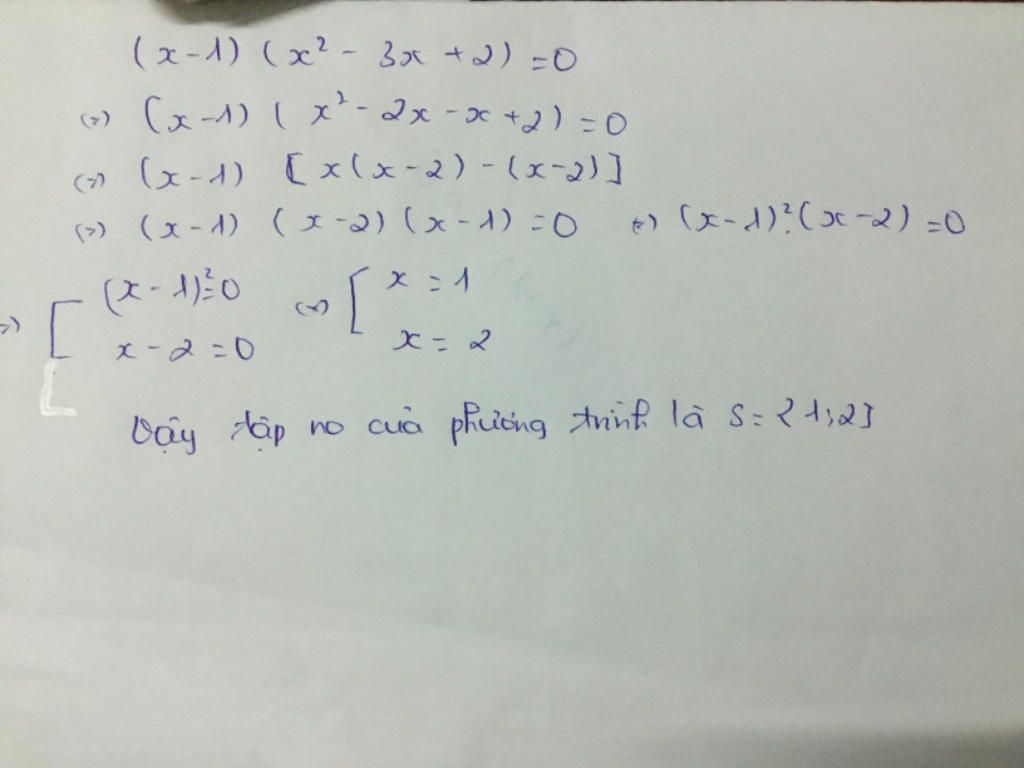 (x-1) (x² - 3x + 2) = 0
(=) (x-1) ( x² - 2x - x + 2) = 0
(=) (x-1) [ x(x-2) - (x-2)]
(=) (x-1) (x-2) (x-1) = 0 (=) (x-1)².(x-2) = 0
(=) [ (x-1)² = 0 (=) [ x = 1
x - 2 = 0 x = 2
Vậy tập no của phương trình là S = {1;2}